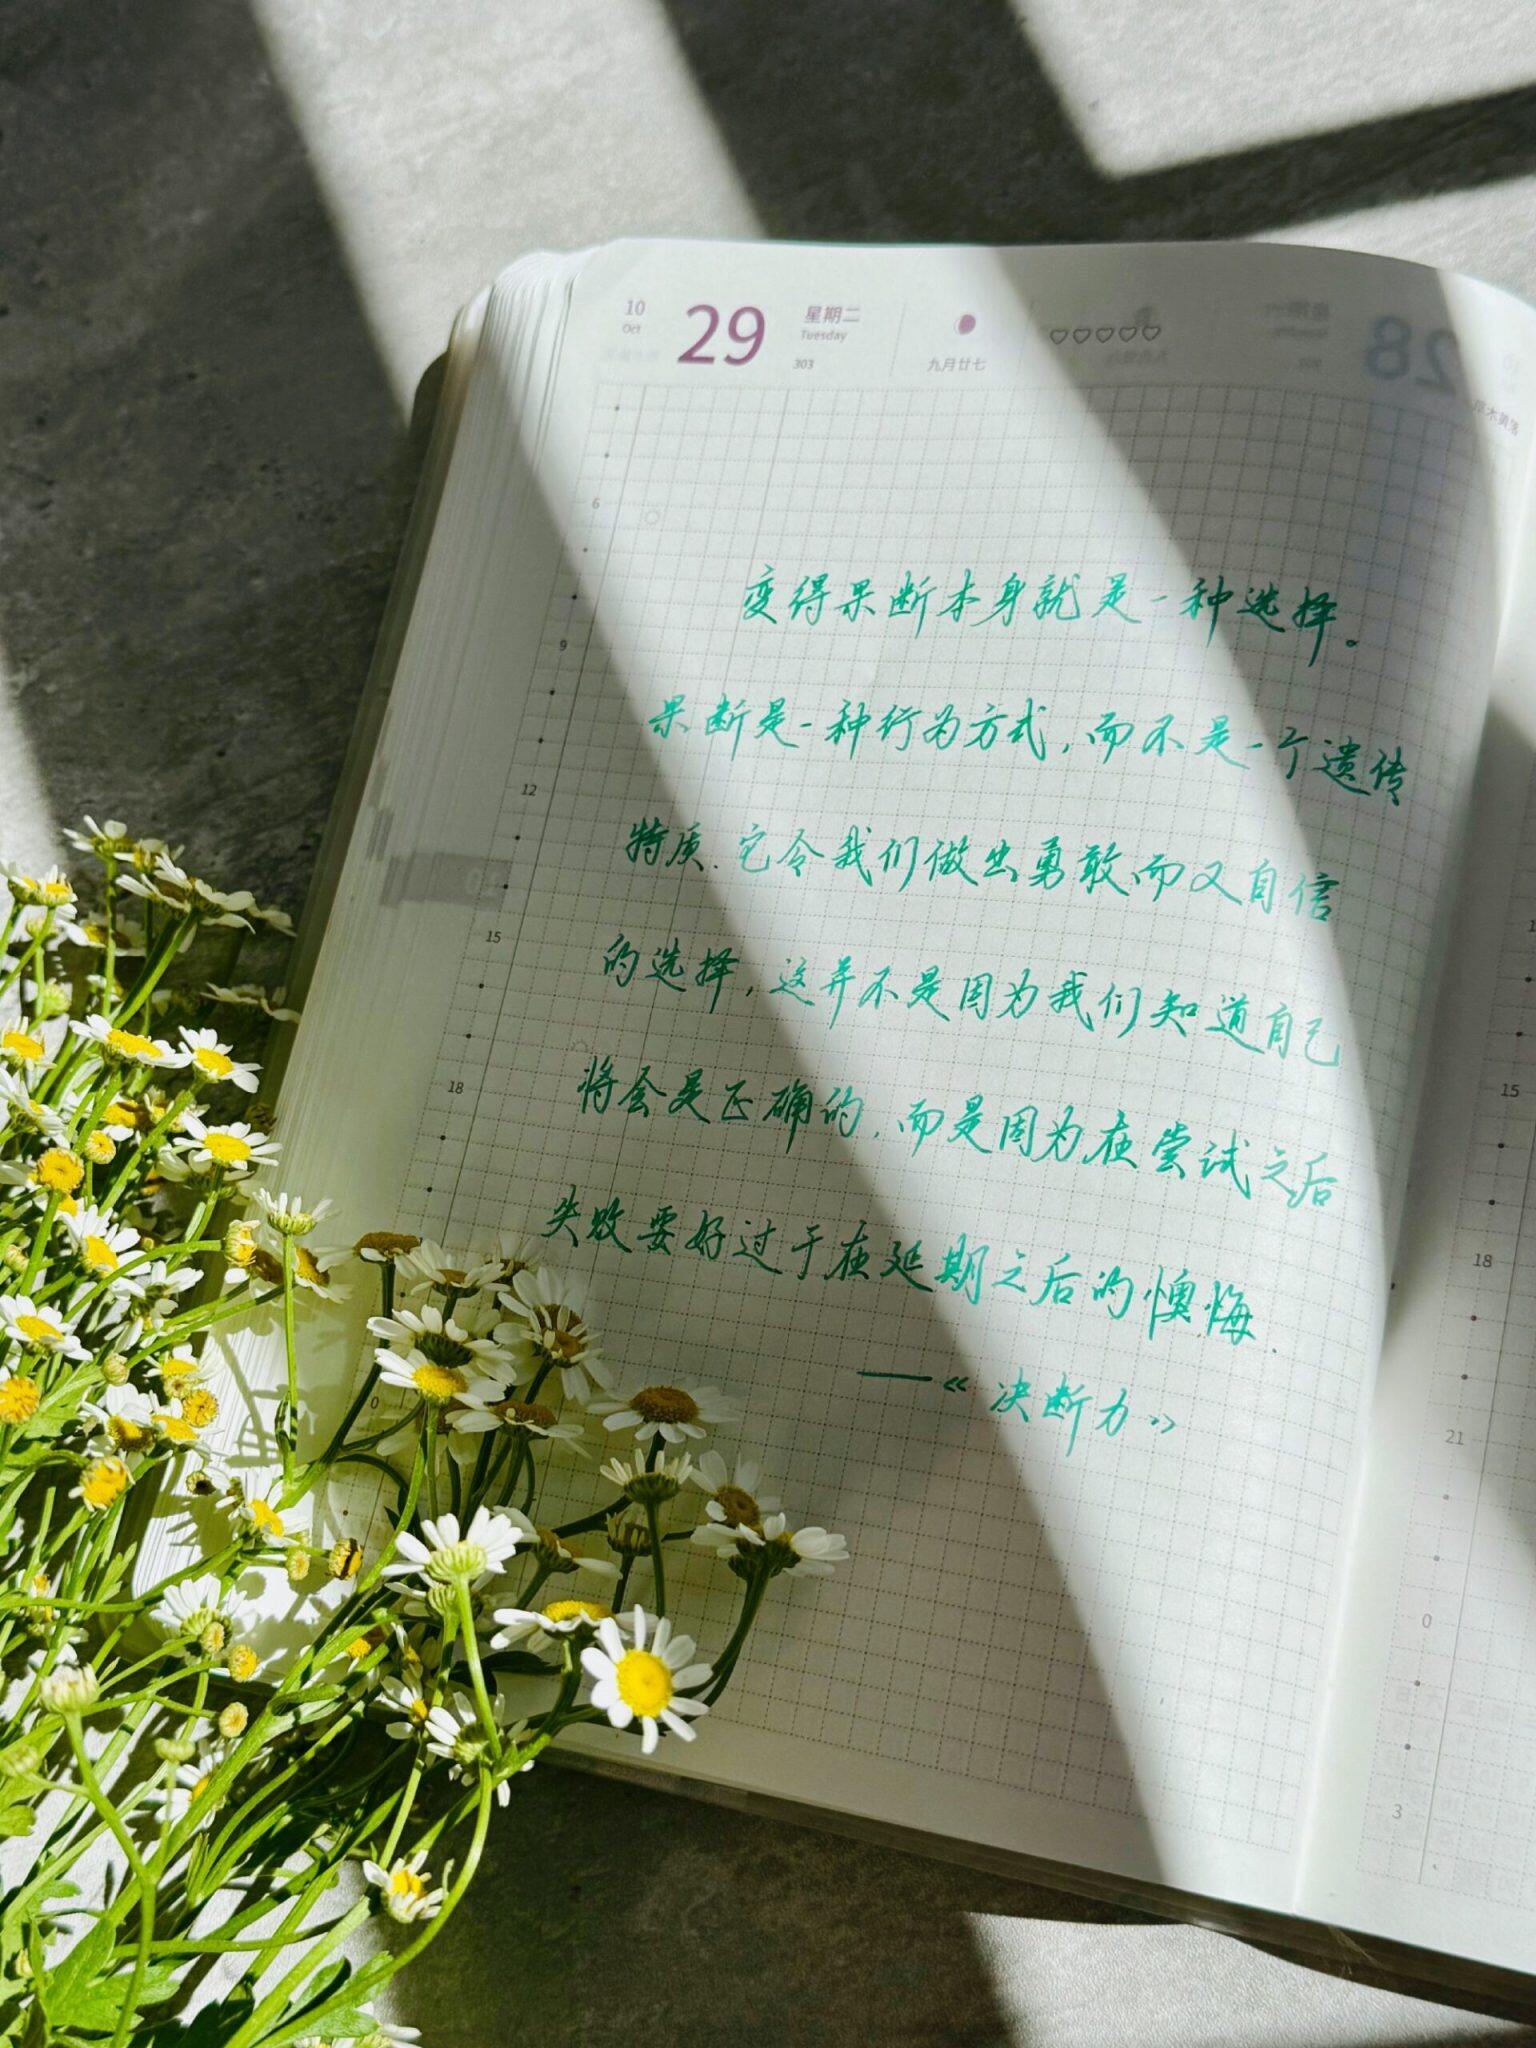 10
Oct
29
星期二
Tuesday
303
九月廿七
28
6
9
12
15
18
0
变得果断本身就是一种选择。
果断是一种行为方式，而不是一个遗传
特质.它令我们做出勇敢而又自信
的选择，这并不是因为我们知道自己
将会是正确的，而是因为在尝试之后
失败要好过于在延期之后的懊悔.
——《决断力》
15
18
21
0
3